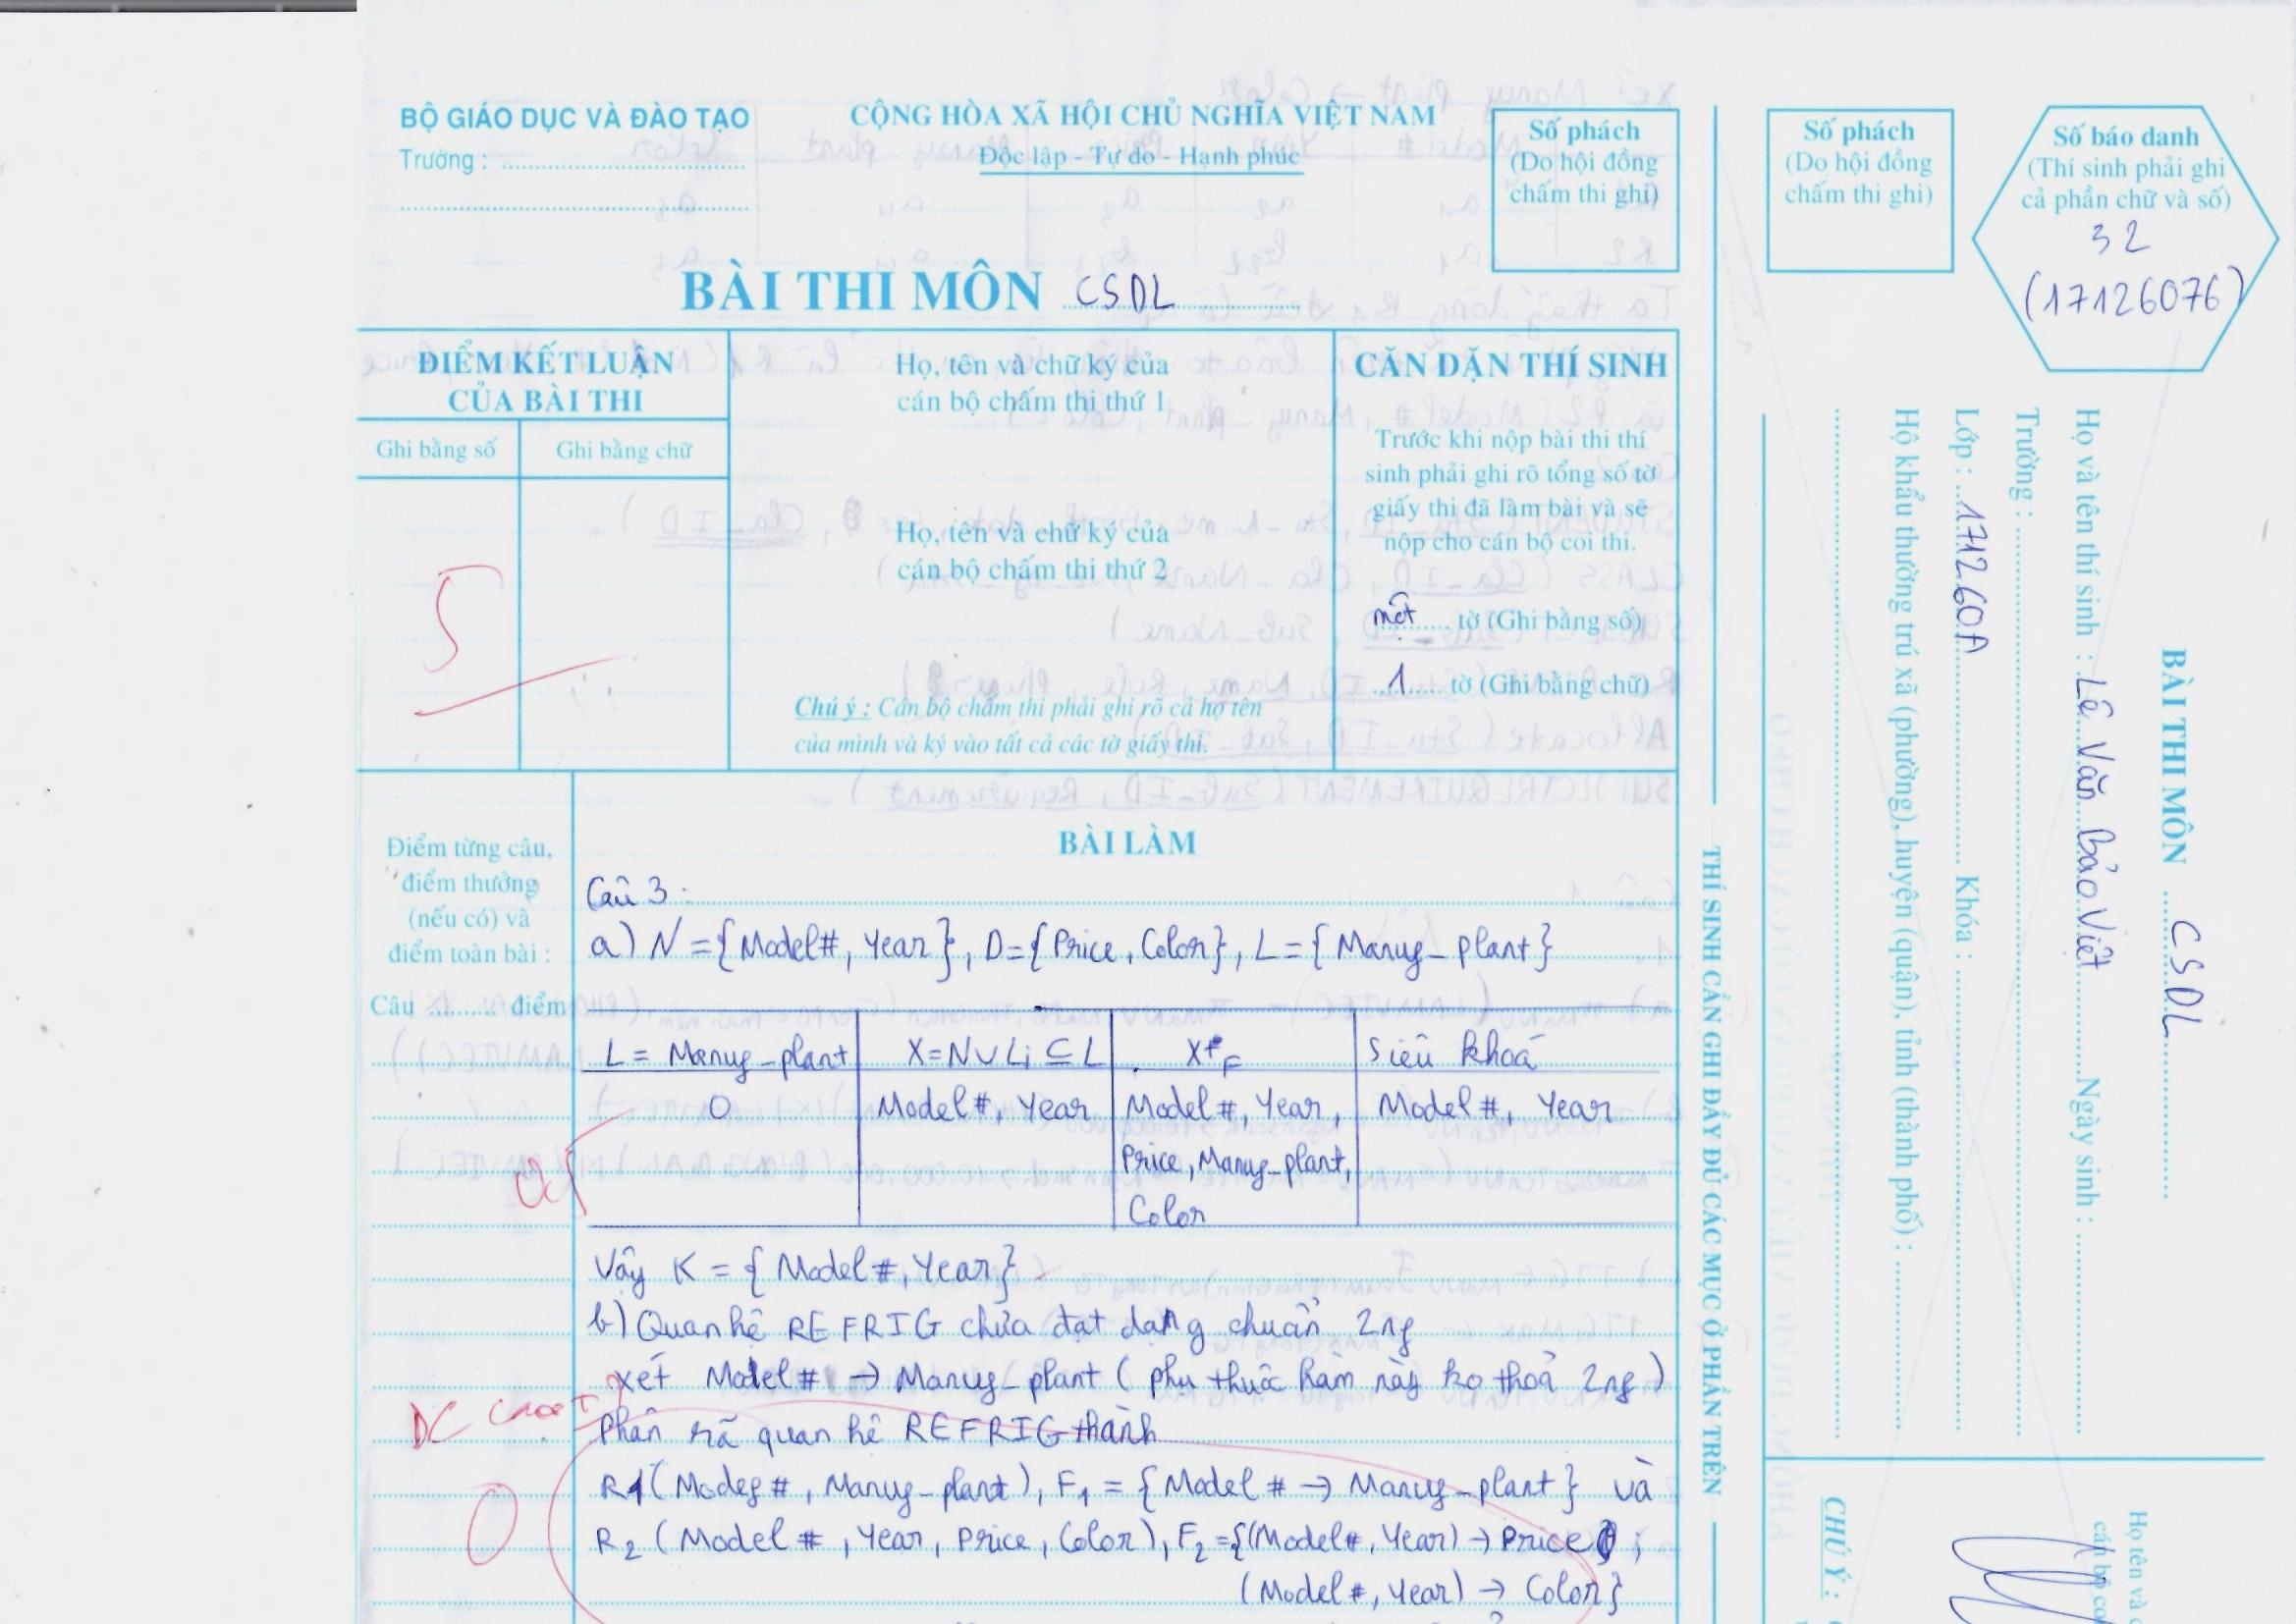 BỘ GIÁO DỤC VÀ ĐÀO TẠO
Trường :
CỘNG HÒA XÃ HỘI CHỦ NGHĨA VIỆT NAM
Độc lập - Tự do - Hạnh phúc
Số phách
(Do hội đồng
chấm thi ghi)
BÀI THI MÔN CSDL
ĐIỂM KẾT LUẬN
CỦA BÀI THI
Ghi bằng số
Ghi bằng chữ
5
Họ, tên và chữ ký của
cán bộ chấm thi thứ 1
Họ, tên và chữ ký của
cán bộ chấm thi thứ 2
Chú ý : Cán bộ chấm thi phải ghi rõ cả họ tên
của mình và ký vào tất cả các tờ giấy thi.
CĂN DẶN THÍ SINH
Trước khi nộp bài thi thí
sinh phải ghi rõ tổng số tờ
giấy thi đã làm bài và sẽ
nộp cho cán bộ coi thi.
một tờ (Ghi bằng số)
1 tờ (Ghi bằng chữ)
Điểm từng câu,
điểm thưởng
(nếu có) và
điểm toàn bài :
Câu ......... điểm
BÀI LÀM
Câu 3 :
a) N = {Model#, Year}, D={Price, Color}, L={Manuf_plant}
L = Manuf_plant | X=N∪Li ⊆ L | X+F | siêu khoá
0 | Model#, Year | Model#, Year, | Model#, Year
Price, Manuf_plant,
Color
Vậy K = {Model#, Year}
b) Quan hệ REFRIG chưa đạt dạng chuẩn 2nf
xét Model# → Manuf_plant (phụ thuộc hàm này ko thoả 2nf)
phân rã quan hệ REFRIG thành
R1(Model#, Manuf_plant), F1 = {Model# → Manuf_plant} và
R2 (Model#, Year, Price, Color), F2={(Model#, Year) → Price ;
(Model#, Year) → Color}
0
Số phách
(Do hội đồng
chấm thi ghi)
Số báo danh
(Thí sinh phải ghi
cả phần chữ và số)
32
(17126076)
BÀI THI MÔN CSDL
Họ và tên thí sinh : Lê Văn Bảo Việt Ngày sinh :
Trường :
Lớp : 171260A Khóa :
Hộ khẩu thường trú xã (phường), huyện (quận), tỉnh (thành phố) :
THÍ SINH CẦN GHI ĐẦY ĐỦ CÁC MỤC Ở PHẦN TRÊN
CHÚ Ý :
Họ tên và
cán bộ co